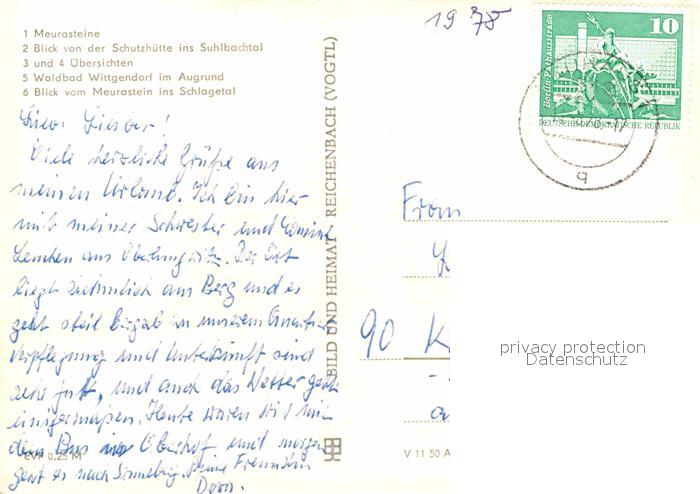 1 Meurasteine
2 Blick von der Schutzhütte ins Suhlbachtal
3 und 4 Übersichten
5 Waldbad Wittgendorf im Augrund
6 Blick vom Meurastein ins Schlagetal
19 78
10
Berlin, Rathausstraße
DEUTSCHE DEMOKRATISCHE REPUBLIK
9
Viele herzliche Grüße aus
meinem Urlaub. Ich bin hier
mit meiner Schwester und
aus Oberlungwitz. Der Ort
liegt ziemlich am Berg und es
geht steil bergab in unserem
Verpflegung und Unterkunft sind
sehr gut, und auch das Wetter geht
einigermaßen. Heute waren wir mit
dem Bus in Oberhof und morgen
geht es nach Deine Freundin
Dora.
EVP 0,25 M
BILD UND HEIMAT REICHENBACH (VOGTL)
Frau
90 K
V 11 50 A
privacy protection
Datenschutz